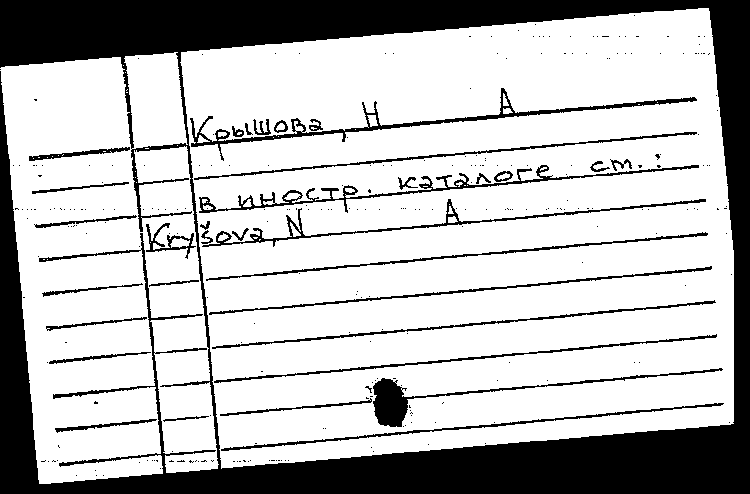 Крышова, Н А
в иностр. каталоге см.:
Kryšova, N A